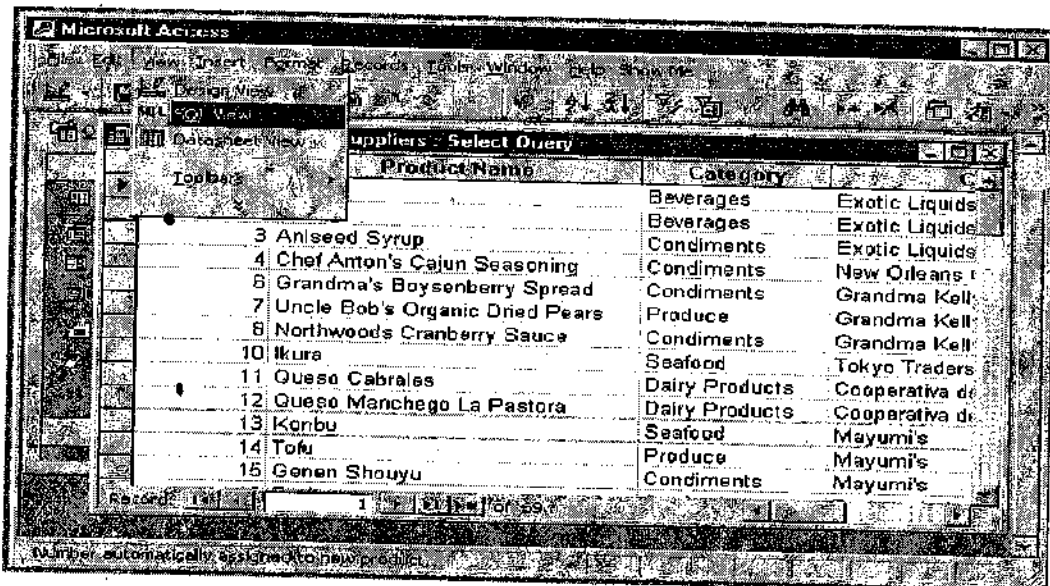 Microsoft Access
Edit View Insert Format Records Tools Window Help Show Me
Design View
SQL View
Datasheet View
Toolbars
uppliers : Select Query
Product Name Category
Beverages Exotic Liquids
Beverages Exotic Liquids
3 Aniseed Syrup Condiments Exotic Liquids
4 Chef Anton's Cajun Seasoning Condiments New Orleans
6 Grandma's Boysenberry Spread Condiments Grandma Kell
7 Uncle Bob's Organic Dried Pears Produce Grandma Kell
8 Northwoods Cranberry Sauce Condiments Grandma Kell
10 Ikura Seafood Tokyo Traders
11 Queso Cabrales Dairy Products Cooperativa de
12 Queso Manchego La Pastora Dairy Products Cooperativa de
13 Konbu Seafood Mayumi's
14 Tofu Produce Mayumi's
15 Genen Shouyu Condiments Mayumi's
Record: 1 of 69
Number automatically assigned to new product.